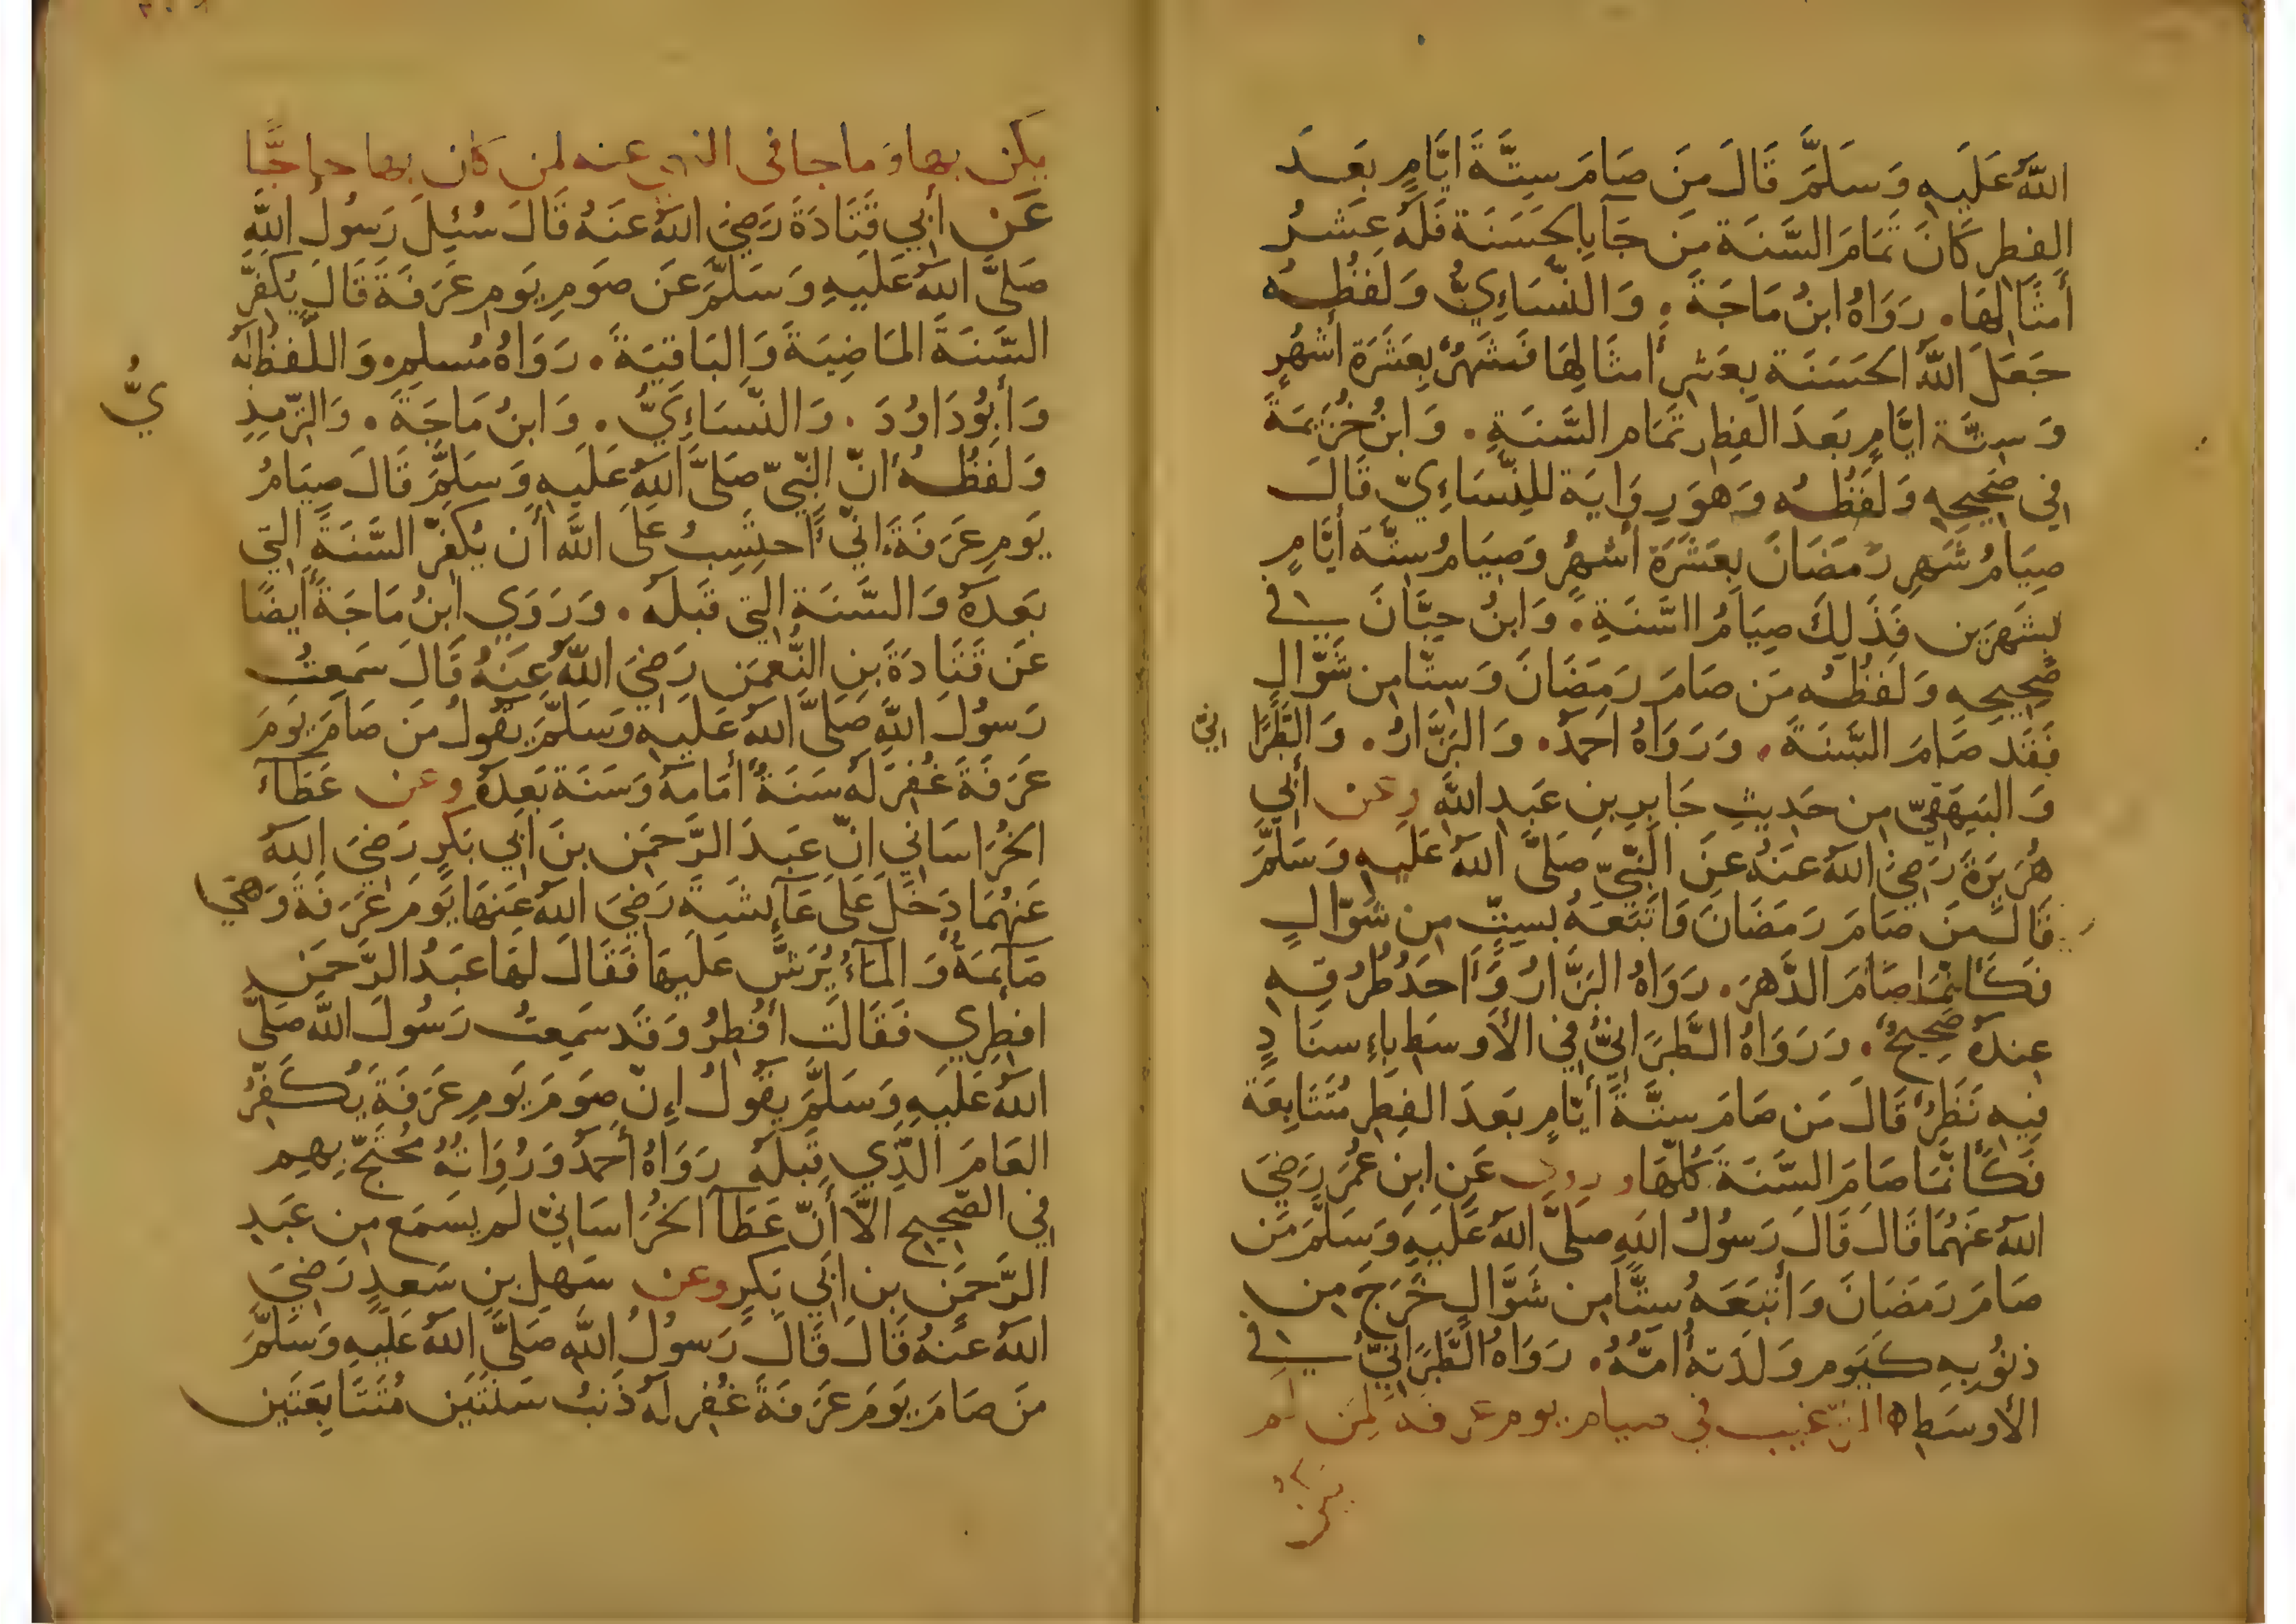 اللّٰهُ عَلَيهِ وَسَلَّمَ قَالَ مَن صَامَ سِتَّةَ ايَّامٍ بَعدَ
الفِطرِ كَانَ تَمَامَ السَّنَةِ مَن جَآ بِالحَسَنَةِ فَلَهُ عَشرُ
أمثَالِهَا . رَوَاهُ ابنُ مَاجَةَ . وَالنَّسَاءِيُّ وَلَفظُهُ
جَعَلَ اللّٰهُ الحَسَنَةَ بِعَشرِ أمثَالِهَا فَشَهرٌ بِعَشَرَةِ أشهُرٍ
وَسِتَّة ايَّامٍ بَعدَ الفِطرِ تَمَام السَّنَةِ . وَابنُ خُزَيمَةَ
فِي صَحِيحِهِ وَلَفظُهُ وَهوَ رِوَايَة لِلنَّسَاءِيّ قَالَ
صِيَامُ شَهرِ رَمَضَانَ بِعَشَرَةِ أشهُرٍ وَصِيَامُ سِتَّةِ أيَّامٍ
بِشَهرَينِ فَذَلِكَ صِيَامُ السَّنَةِ . وَابنُ حِبَّانَ في
صَحِيحِهِ وَلَفظُهُ مَن صَامَ رَمَضَانَ وَسِتًّا مِن شَوَّالٍ
فَقَد صَامَ السَّنَةَ . وَرَوَاهُ احمَدُ . وَالبَزَّارُ . وَالطَّبَرَا نِيّ
وَالبَيهَقِيّ مِن حَدِيثِ جَابِرِ بنِ عَبدِ اللّٰهِ وعن أبِي
هُرَيرَةَ رَضِيَ اللّٰهُ عَنهُ عَنِ النَّبِيِّ صَلَّى اللّٰهُ عَلَيهِ وَسَلَّمَ
قَالَ مَن صَامَ رَمَضَانَ وَاتبَعَهُ بِسِتٍّ مِن شَوَّالٍ
فَكَأنَّمَا صَامَ الدَّهرَ . رَوَاهُ البَزَّارُ وَأحَدُ طُرُقِهِ
عِندَهُ صَحِيحٌ . وَرَوَاهُ الطَّبَرَانِيُّ فِي الأَوسَطِ بِاءِسنَادٍ
فِيهِ نَظَرٌ قَالَ مَن صَامَ سِتَّةَ أيَّامٍ بَعدَ الفِطرِ مُتَتَابِعَةً
فَكَأنَّمَا صَامَ السَّنَةَ كُلَّهَا وروي عَنِ ابنِ عُمَرَ رَضِيَ
اللّٰهُ عَنهُمَا قَالَ قَالَ رَسُولُ اللّٰهِ صَلَّى اللّٰهُ عَلَيهِ وَسَلَّمَ مَن
صَامَ رَمَضَانَ وَأتبَعَهُ سِتًّا مِن شَوَّالٍ خَرَجَ مِن
ذنُوبِهِ كَيَومِ وَلَدَتهُ أُمُّهُ . رَوَاهُ الطَّبَرَانِيُّ في
الأوسَطِ ه الترغيب في صيام يوم عرفة لِمَن لم
يكن
يكن بها وَما جا في النهي عنه لمن كان بها حاجًّا
عَن أبِي قَتَادَةَ رَضِيَ اللّٰهُ عَنهُ قَالَ سُئِلَ رَسُولُ اللّٰهِ
صَلَّى اللّٰهُ عَلَيهِ وَسَلَّمَ عَن صَومِ يَومِ عَرَفَةَ قَالَ يُكَفِّرُ
السَّنَةَ المَاضِيَةَ وَالبَاقِيَةَ . رَوَاهُ مُسلِم . وَاللَّفظُ لَهُ
وَأبُودَاوُدَ . وَالنَّسَاءِيُّ . وَابنُ مَاجَةَ . وَالتِّرمِذِ يُّ
وَلَفظُهُ انّ النَّبِيّ صَلَّى اللّٰهُ عَلَيهِ وَسَلَّمَ قَالَ صِيَامُ
يَومِ عَرَفَةَ اِنِّي أحتَسِبُ عَلَى اللّٰهِ أن يُكَفِّرَ السَّنَةَ الَّتِي
بَعدَهُ وَالسَّنَةَ الَّتِي قَبلَهُ . وَرَوَي ابنُ مَاجَةَ أيضًا
عَن قَتَادَةَ بنِ النُّعمَن رَضِيَ اللّٰهُ عَنهُ قَالَ سَمِعتُ
رَسُولَ اللّٰهِ صَلَّى اللّٰهُ عَلَيهِ وَسَلَّمَ يَقُولُ مَن صَامَ يَومَ
عَرَفَةَ غُفِرَ لَهُ سَنَةٌ أمَامَهُ وَسَنَة بَعدَهُ وعن عَطَآءَ
الخُرَاسَانِي اِنّ عَبدَ الرَّحمَن بنَ ابِي بَكرٍ رَضِيَ اللّٰهُ
عَنهُمَا دَخَلَ عَلَى عَآئِشَةَ رَضِيَ اللّٰهُ عَنهَا يَومَ عَرَفَةَ وَهِيَ
صَآئِمَةٌ وَالمَآءُ يُرَشُّ عَلَيهَا فَقَالَ لَهَا عَبدُ الرَّحمَن
افطِرِي فَقَالَت أفطِرُ وَقَد سَمِعتُ رَسُولَ اللّٰهِ صَلَّى
اللّٰهُ عَلَيهِ وَسَلَّمَ يَقُولُ اِنّ صَومَ يَومِ عَرَفَةَ يُكَفِّرُ
العَامَ الَّذِي قَبلَهُ رَوَاهُ أحمَدُ وَرُوَاتُهُ مُحتَجّ بِهِم
فِي الصَّحِيحِ الَّا أنّ عَطَآ الخُرَاسَانِيّ لم يَسمَع مِن عَبدِ
الرَّحمَنِ بن ابِي بَكرٍ وعن سَهلِ بنِ سَعدٍ رَضِيَ
اللّٰهُ عَنهُ قَالَ قَالَ رَسُولُ اللّٰهِ صَلَّى اللّٰهُ عَلَيهِ وَسَلَّمَ
مَن صَامَ يَومَ عَرَفَةَ غُفِرَ لَهُ ذَنبُ سَنَتَينِ مُتَتَابِعَتَينِ